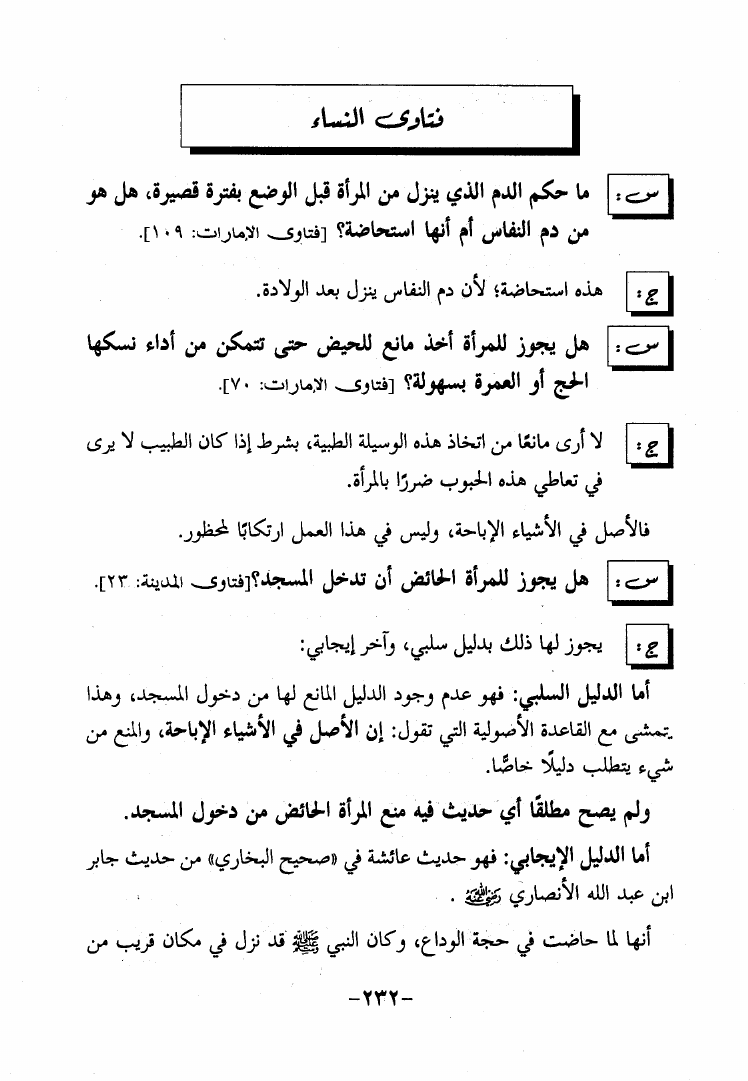 فتاوى النساء
س: ما حكم الدم الذي ينزل من المرأة قبل الوضع بفترة قصيرة، هل هو
من دم النفاس أم أنها استحاضة؟ [فتاوى الإمارات: ١٠٩].
ج: هذه استحاضة؛ لأن دم النفاس ينزل بعد الولادة.
س: هل يجوز للمرأة أخذ مانع للحيض حتى تتمكن من أداء نسكها
الحج أو العمرة بسهولة؟ [فتاوى الإمارات: ٧٠].
ج: لا أرى مانعًا من اتخاذ هذه الوسيلة الطبية، بشرط إذا كان الطبيب لا يرى
في تعاطي هذه الحبوب ضررًا بالمرأة.
فالأصل في الأشياء الإباحة، وليس في هذا العمل ارتكابًا لمحظور.
س: هل يجوز للمرأة الحائض أن تدخل المسجد؟[فتاوى المدينة: ٢٣].
ج: يجوز لها ذلك بدليل سلبي، وآخر إيجابي:
أما الدليل السلبي: فهو عدم وجود الدليل المانع لها من دخول المسجد، وهذا
يتمشى مع القاعدة الأصولية التي تقول: إن الأصل في الأشياء الإباحة، والمنع من
شيء يتطلب دليلًا خاصًّا.
ولم يصح مطلقًا أي حديث فيه منع المرأة الحائض من دخول المسجد.
أما الدليل الإيجابي: فهو حديث عائشة في «صحيح البخاري» من حديث جابر
ابن عبد الله الأنصاري رضي الله عنه .
أنها لما حاضت في حجة الوداع، وكان النبي ﷺ قد نزل في مكان قريب من
-٢٣٢-